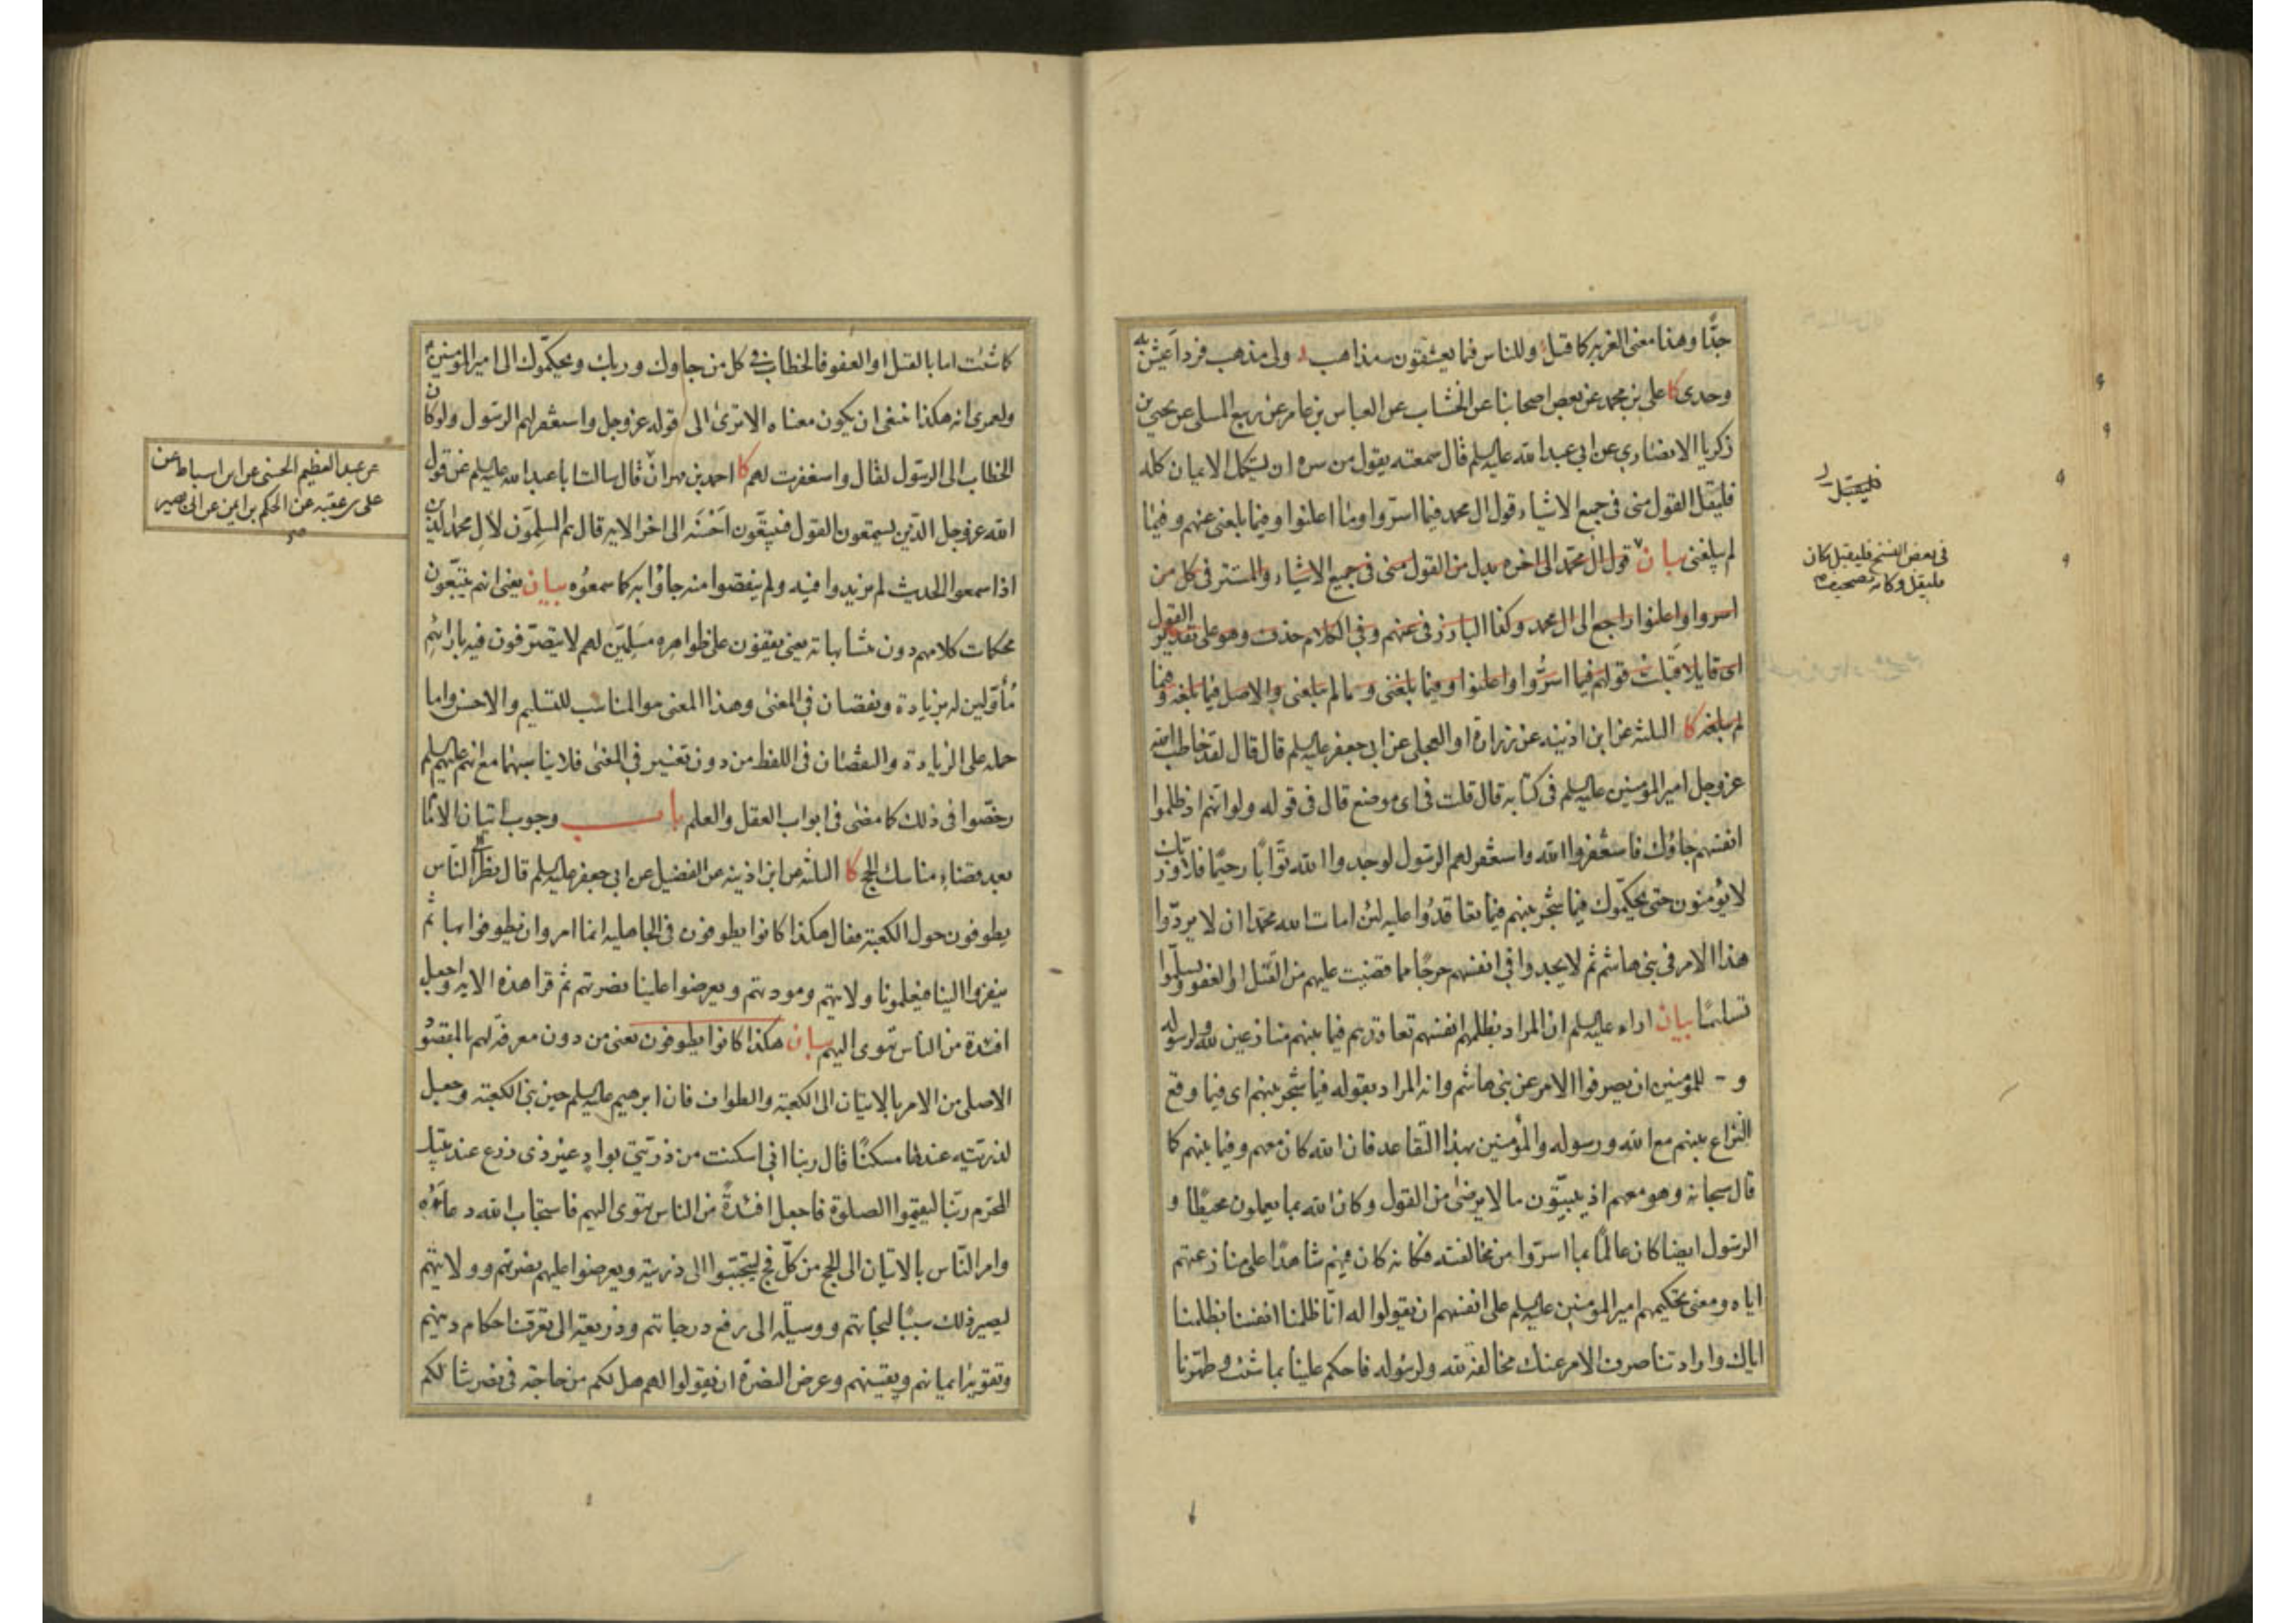 جدًّا وهذا معنى الغريب كما قيل وللناس فيما يعشقون مذاهب ولى مذهب فرد اعيش به
وحدى كا على بن محمد عن بعض اصحابنا عن الخشاب عن العباس بن عامر عن ربيع المسلى عن يحيى بن
زكريا الانصارى عن ابى عبد الله عليه السلم قال سمعته يقول من سره ان يستكمل الايمان كله
فليقل القول منى فى جميع الاشياء قول ال محمد فيما اسروا وما اعلنوا وفيما بلغنى عنهم وفيما
لم يبلغنى بيان قول ال محمد الى اخره بدل من القول منى فى جميع الاشياء والمستتر فى كل من
اسروا واعلنوا راجع الى ال محمد وكذا البارز فى عنهم وفى الكلام حذف وهو على تقدير القول
اى قايلا قبلت قولهم فيما اسرّوا واعلنوا وفيما بلغنى وما لم يبلغنى والاصل فيما بلغه وفيما
لم يبلغه كا الثلثه عن ابن اذينه عن زرارة او العجلى عن ابى جعفر عليه السلم قال قال لقد خاطب الله
عز وجل امير المؤمنين عليه السلم فى كتابه قال قلت فى اى موضع قال فى قوله ولو انهم اذ ظلموا
انفسهم جاؤك فاستغفروا الله واستغفر لهم الرسول لوجدوا الله توّابًا رحيمًا فلا وربك
لا يؤمنون حتى يحكّموك فيما شجر بينهم فيما تعاقدوا عليه لئن امات الله محمدا ان لا يردّوا
هذا الامر فى بنى هاشم ثم لا يجدوا فى انفسهم حرجًا مما قضيت عليهم من القتل او العفو ويسلّموا
تسليمًا بيان اراد عليه السلم ان المراد بظلمهم انفسهم تعاقدهم فيما بينهم منازعين لله ولرسوله
و - للمؤمنين ان يصرفوا الامر عن بنى هاشم وانه المراد بقوله فيما شجر بينهم اى فيما وقع
النزاع بينهم مع الله ورسوله والمؤمنين بهذا التعاقد فان الله كان معهم وفيما بينهم كما
قال سبحانه وهو معهم اذ يبيّتون ما لا يرضى من القول وكان الله بما يعملون محيطًا و
الرسول ايضا كان عالمًا بما اسرّوا من مخالفته فكانه كان فيهم شاهدًا على منازعتهم
اياه ومعنى تحكيمهم امير المؤمنين عليه السلم على انفسهم ان يقولوا له انّا ظلمنا انفسنا بظلمنا
اياك وارادتنا صرف الامر عنك مخالفة لله ولرسوله فاحكم علينا بما شئت وطهّرنا
فليقبل
فى بعض النسخ فليقبل مكان
فليقل وكانه تصحيف
كما شئت اما بالقتل او العفو فالخطاب فى كل من جاؤك وربك ويحكّموك الى امير المؤمنين
ولعمرى انه هكذا ينبغى ان يكون معناه الا ترى الى قوله عز وجل واستغفر لهم الرسول ولو كان
الخطاب الى الرسول لقال واستغفرت لهم كا احمد بن مهران قال سالت ابا عبد الله عليه السلم عن قول
الله عز وجل الذين يستمعون القول فيتبعون احسنه الى اخر الايه قال هم المسلّمون لال محمد الذين
اذا سمعوا الحديث لم يزيدوا فيه ولم ينقصوا منه جاؤا به كما سمعوه بيان يعنى انهم يتبعون
محكمات كلامهم دون متشابهاته يعنى يقفون على ظواهره مسلّمين لهم لا يتصرّفون فيه بارائهم
مُأوّلين له بزيادة ونقصان فى المعنى وهذا المعنى هو المناسب للتسليم والاحسن واما
حمله على الزيادة والنقصان فى اللفظ من دون تغيير فى المعنى فلا يناسبهما مع انهم عليهم السلم
رخّصوا فى ذلك كما مضى فى ابواب العقل والعلم باب وجوب اتيان الامام
بعد قضاء مناسك الحج كا الثلثه عن ابن اذينه عن الفضيل عن ابى جعفر عليه السلم قال نظر الى الناس
يطوفون حول الكعبة فقال هكذا كانوا يطوفون فى الجاهليه انما امروا ان يطوفوا بها ثم
ينفروا الينا فيعلمونا ولايتهم ومودتهم ويعرضوا علينا نصرتهم ثم قرا هذه الايه واجعل
افئدة من الناس تهوى اليهم بيان هكذا كانوا يطوفون يعنى من دون معرفة لهم بالمقصود
الاصلى من الامر بالاتيان الى الكعبة والطواف فان ابرهيم عليه السلم حين بنى الكعبة وجعل
لذريته عندها مسكنًا قال ربنا انى اسكنت من ذريتى بواد غير ذى زرع عند بيتك
المحرّم ربّنا ليقيموا الصلوة فاجعل افئدةً من الناس تهوى اليهم فاستجاب الله دعاؤه
وامر النّاس بالاتيان الى الحج من كلّ فج ليتحببوا الى ذريته ويعرضوا عليهم نصرتهم وولايتهم
ليصير ذلك سببًا لنجاتهم ووسيلة الى رفع درجاتهم وذريعة الى تعرّف احكام دينهم
وتقوية ايمانهم ويقينهم وعرض النصرة ان يقولوا لهم هل لكم من حاجة فى نصرتنا لكم
عن عبد العظيم الحسنى عن ابن اسباط عن
على بن عقبه عن الحكم بن ايمن عن ابى بصير